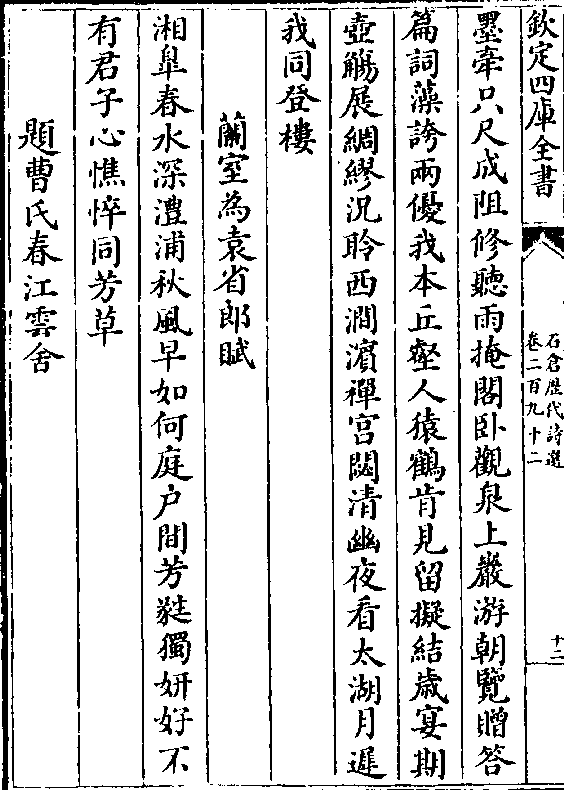 欽定四庫全書
石倉歴代詩選
卷二百九十二
十二
墨牽只尺成阻修聽雨掩閣卧觀泉上巖游朝覽贈答
篇詞藻誇兩優我本丘壑人猿鶴肯見留擬結歳宴期
壺觴展綢繆况聆西澗濱禪宫閟清幽夜看太湖月遲
我同登樓
蘭室為袁省郎賦
湘臯春水深澧浦秋風早如何庭户間芳蕤獨妍好不
有君子心憔悴同芳草
題曹氏春江雲舍